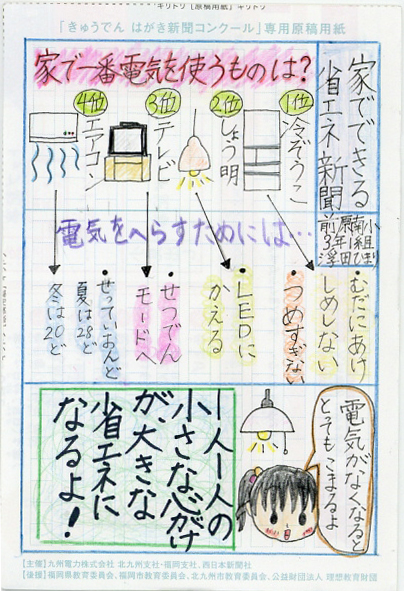 キリトリ〔原稿用紙〕キリトリ
「きゅうでん はがき新聞コンクール」専用原稿用紙
家でできる
省エネ新聞
前原南小
3年1組
浮田ひまり
家で一番電気を使うものは?
1位
冷ぞうこ
2位
しょう明
3位
テレビ
4位
エアコン
電気をへらすためには…
・むだにあけ
しめしない
・つめすぎない
・LEDに
かえる
・せつでん
モードへ
・せっていおんど
夏は28ど
冬は20ど
電気がなくなると
とってもこまるよ
一人一人の
小さな心がけ
が、大きな
省エネに
なるよ!
[主催]九州電力株式会社 北九州支社・福岡支社、西日本新聞社
[後援]福岡県教育委員会、福岡市教育委員会、北九州市教育委員会、公益財団法人 理想教育財団